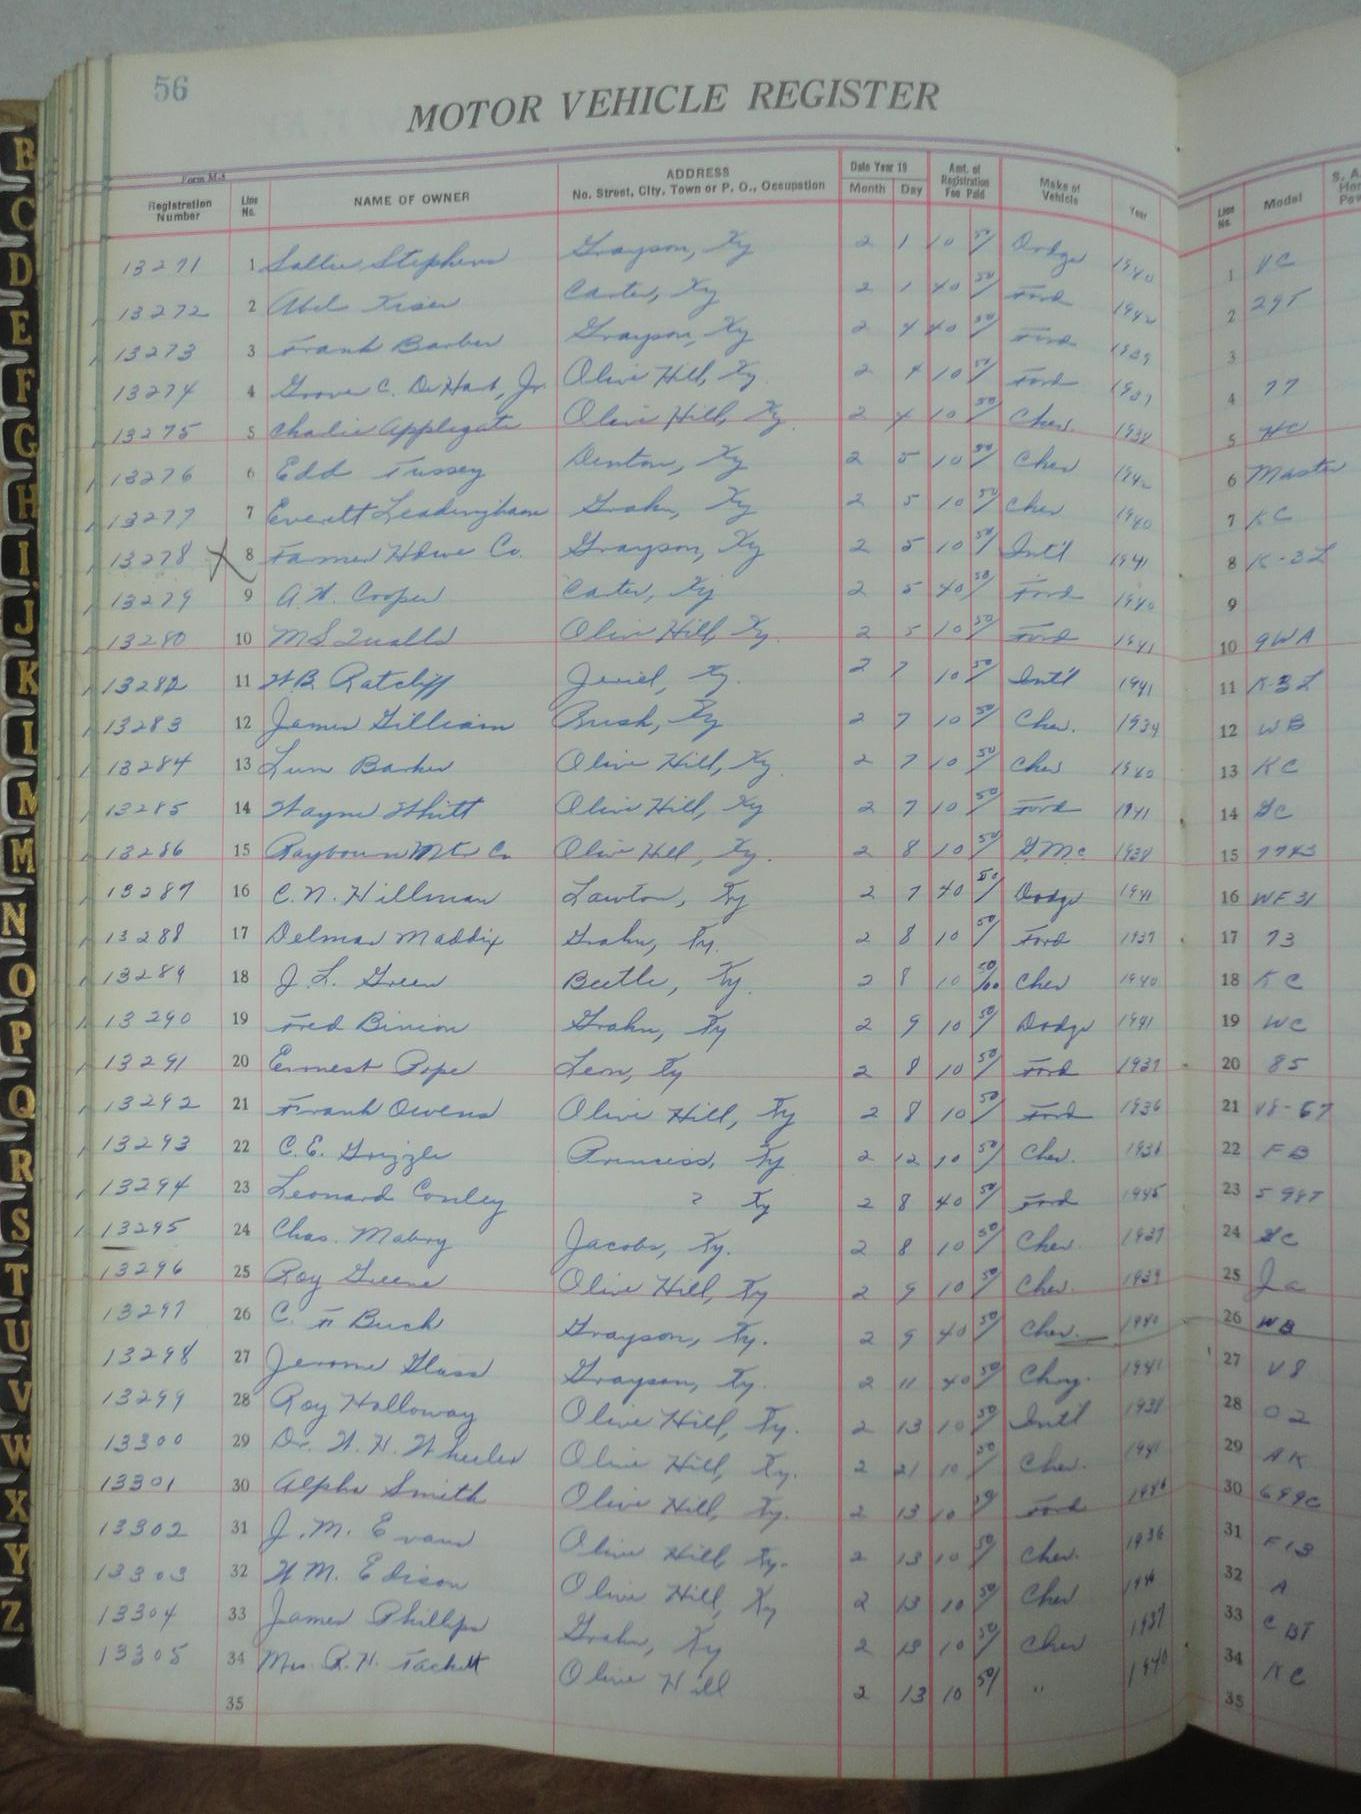 56
MOTOR VEHICLE REGISTER
Form M-4
Registration Number Line No. NAME OF OWNER ADDRESS No. Street, City, Town or P. O., Occupation Date Year 19 Month Day Amt. of Registration Fee Paid Make of Vehicle Year Line No. Model S. A.
13271 1 Sallie Stephens Grayson, Ky 2 1 10 50/ Dodge 1940 1 VC
13272 2 Abel Kiser Carter, Ky 2 1 40 50/ Ford 1942 2 29T
13273 3 Frank Barber Grayson, Ky 2 4 40 50/ Ford 1939 3
13274 4 Grover C. DeHart, Jr Olive Hill, Ky. 2 4 10 50/ Ford 1937 4 77
13275 5 Charlie Applegate Olive Hill, Ky. 2 4 10 50/ Chev. 1938 5 HC
13276 6 Edd Tussey Denton, Ky 2 5 10 50/ Chev 1942 6 Master
13277 7 Everett Leadingham Grahn, Ky 2 5 10 50/ Chev 1940 7 KC
13278 X 8 Farmer Hdwe Co. Grayson, Ky 2 5 10 50/ Int'l 1941 8 K-3L
13279 9 A.H. Cooper Carter, Ky 2 5 40 50/ Ford 1940 9
13280 10 M S Qualls Olive Hill, Ky. 2 5 10 50/ Ford 1941 10 9WA
13282 11 H.B. Ratcliff Jeriel, Ky. 2 7 10 50/ Int'l 1941 11 K-3L
13283 12 James Gilliam Brush, Ky 2 7 10 50/ Chev. 1939 12 WB
13284 13 Lum Barker Olive Hill, Ky 2 7 10 50/ Chev 1940 13 KC
13285 14 Wayne Whitt Olive Hill, Ky 2 7 10 50/ Ford 1941 14 GC
13286 15 Raybourn Mtr Co Olive Hill, Ky. 2 8 10 50/ G.M.C 1938 15
13287 16 C. N. Hillman Lawton, Ky 2 7 40 50/ Dodge 1941 16 WF31
13288 17 Delmar Maddix Grahn, Ky. 2 8 10 50/ Ford 1937 17 73
13289 18 J. L. Green Beetle, Ky. 2 8 10 50/00 Chev 1940 18 KC
13290 19 Fred Binion Grahn, Ky 2 9 10 50/ Dodge 1941 19 WC
13291 20 Ernest Pope Leon, Ky 2 8 10 50/ Ford 1937 20 85
13292 21 Frank Owens Olive Hill, Ky 2 8 10 50/ Ford 1936 21 V8-67
13293 22 C. E. Grizzle Princess, Ky 2 12 10 50/ Chev. 1936 22 FB
13294 23 Leonard Conley ? Ky 2 8 40 50/ Ford 1945 23 598T
13295 24 Chas. Mabry Jacobs, Ky. 2 8 10 50/ Chev. 1937 24 GC
13296 25 Roy Greene Olive Hill, Ky 2 9 10 50/ Chev. 1939 25 Ja
13297 26 C. F Buck Grayson, Ky. 2 9 40 50/ Chev. 1940 26 WB
13298 27 Jerome Glass Grayson, Ky. 2 11 40 50/ Chry. 1941 27 V8
13299 28 Roy Holloway Olive Hill, Ky. 2 13 10 50/ Int'l 1938 28 02
13300 29 Dr. H. H. Wheeler Olive Hill, Ky. 2 21 10 50/ Chev. 1941 29 AK
13301 30 Alpha Smith Olive Hill, Ky. 2 13 10 50/ Ford 1946 30 699C
13302 31 J. M. Evans Olive Hill Ky. 2 13 10 50/ Chev. 1936 31
13303 32 H. M. Edison Olive Hill, Ky 2 13 10 50/ Chev 32 A
13304 33 James Phillips Grahn, Ky 2 13 10 50/ Chev 1937 33
13305 34 Mrs. R. H. Tackett Olive Hill 2 13 10 50/ " 1940 34 KC
35 35
B
C
D
E
F
G
H
I
J
K
L
M
M
N
O
P
Q
R
S
T
U
V
W
X
Y
Z